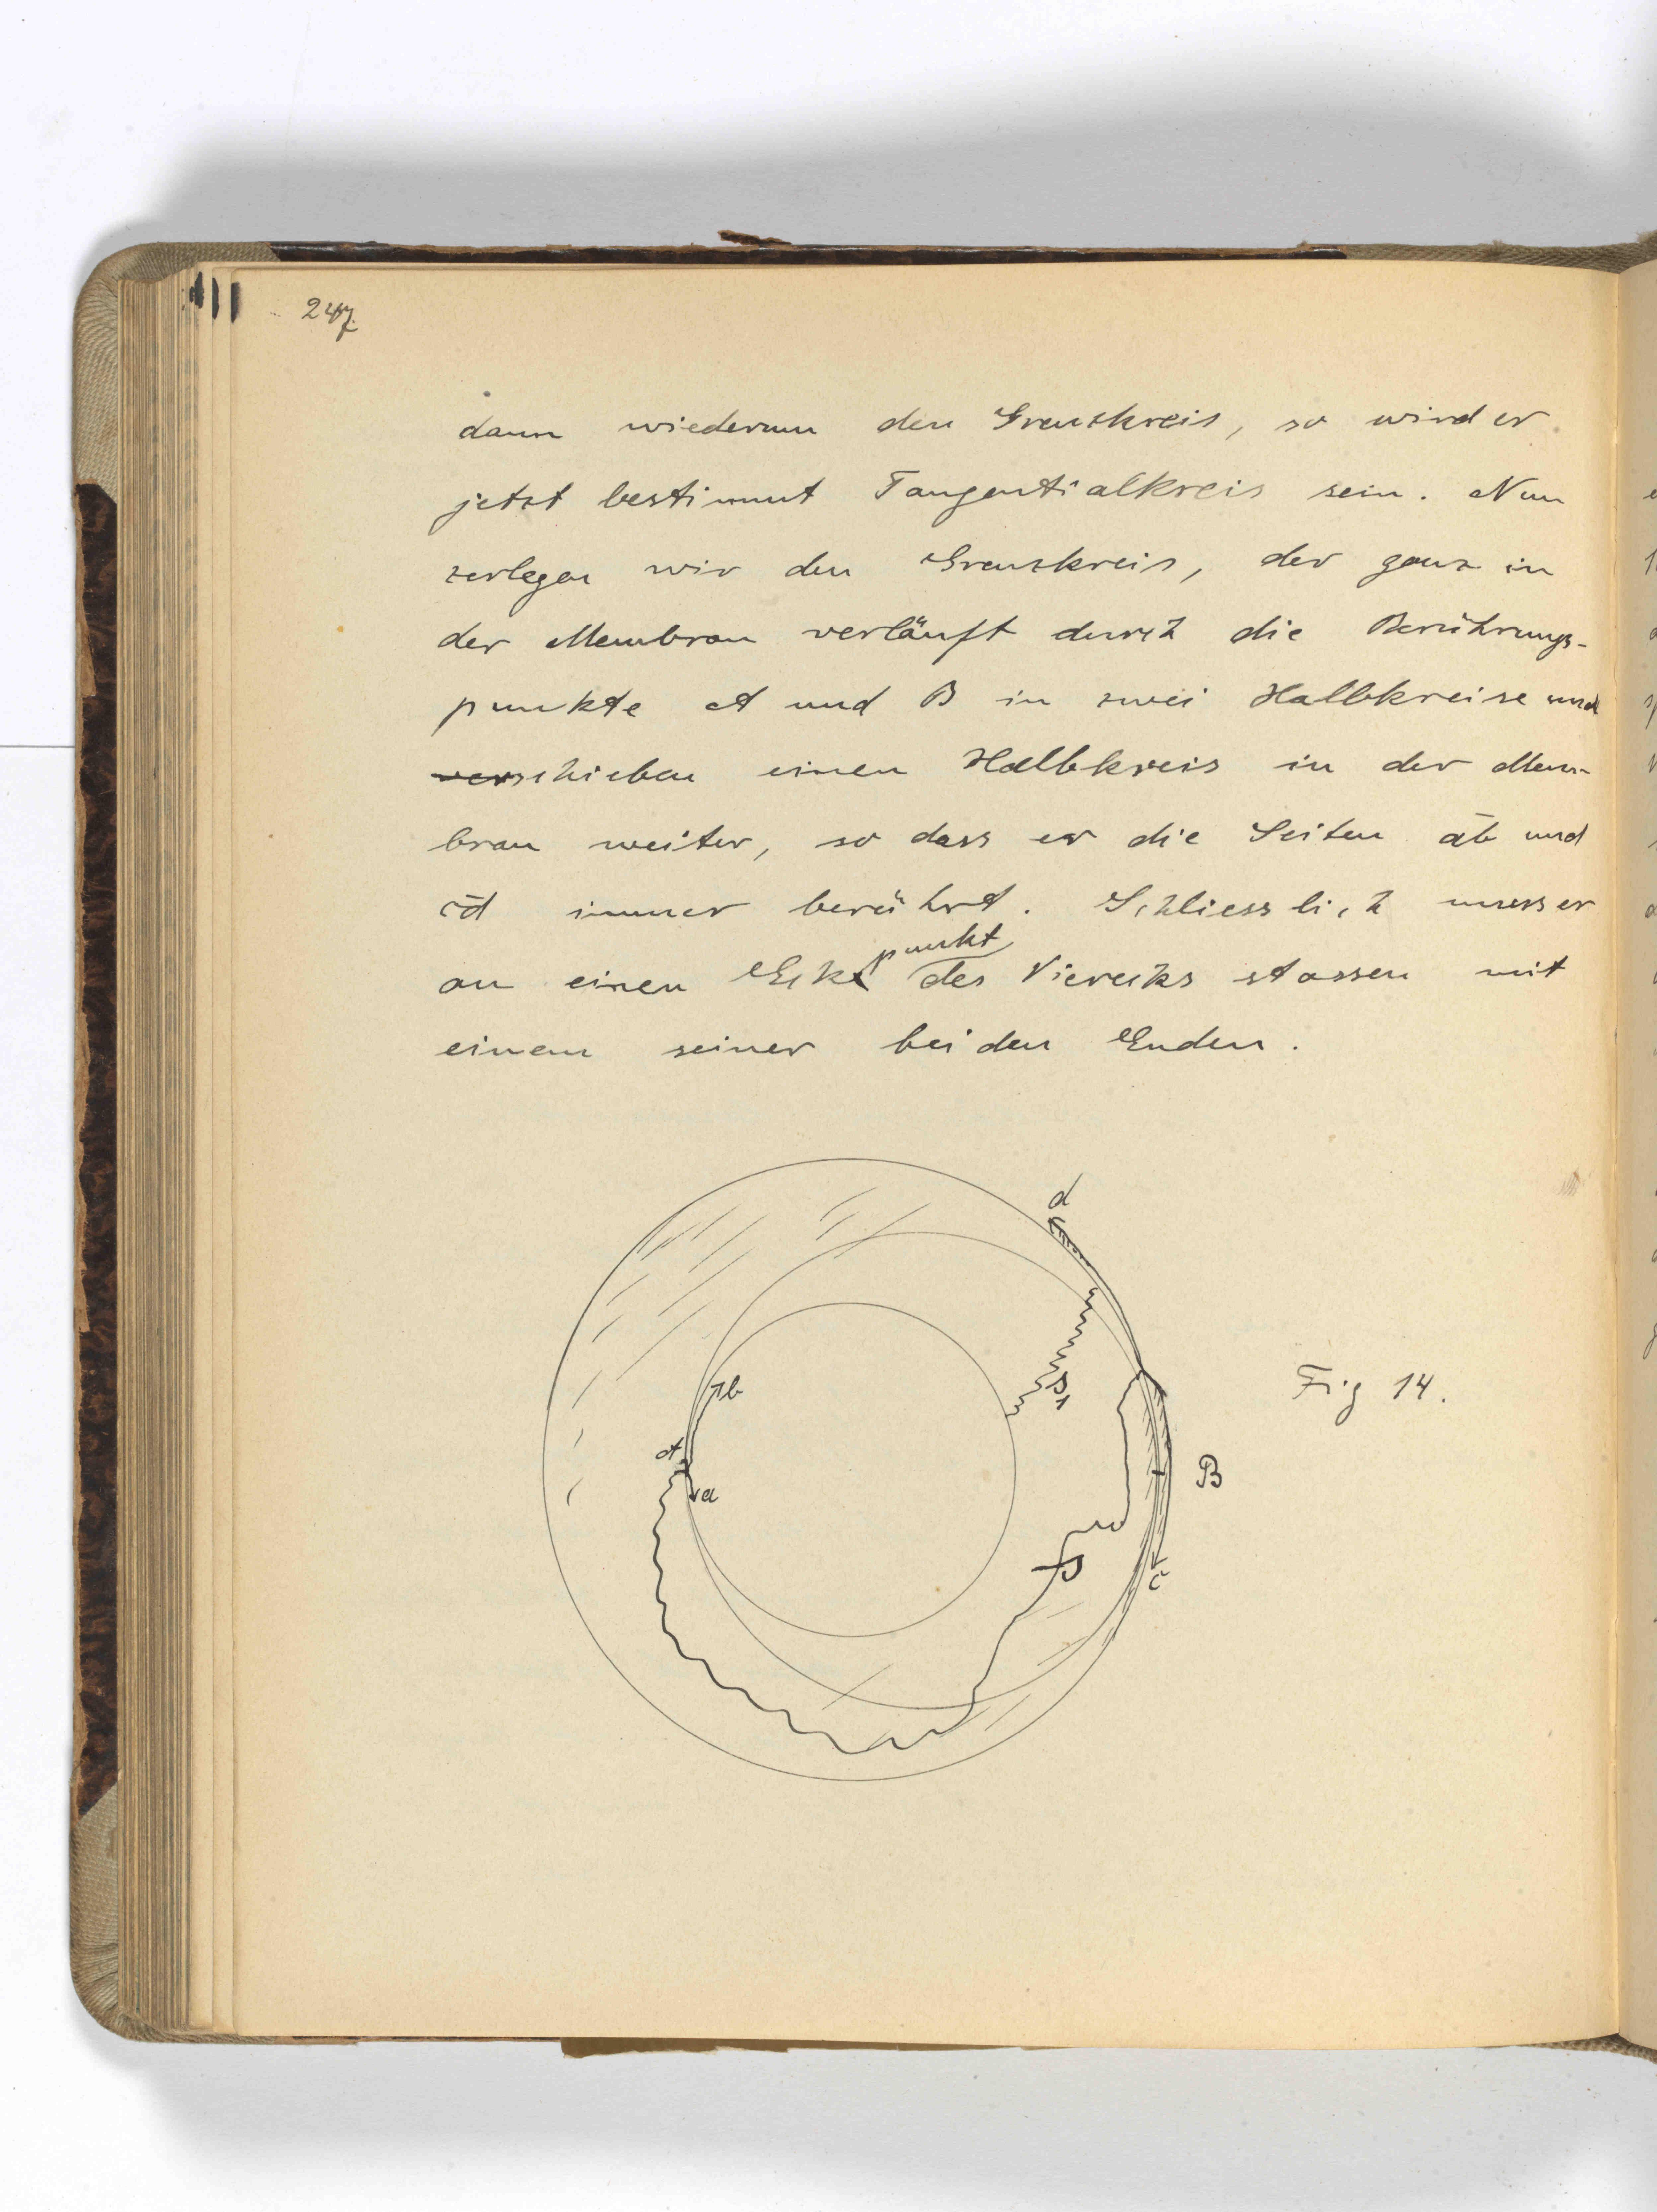 247.
dann wiederum den Grenzkreis, so wird er
jetzt bestimmt Tangentialkreis sein. Nun
zerlegen wir den Grenzkreis, der ganz in
der Membran verläuft durch die Berührungs-
punkte A und B in zwei Halbkreise und
verschieben einen Halbkreis in der Mem-
bran weiter, so dass er die Seiten ab und
cd immer berührt. Schliesslich muss er
an einen Eckpunkt des Vierecks stossen mit
einem seiner beiden Enden.
d
b
s1
Fig 14.
A
a
B
c